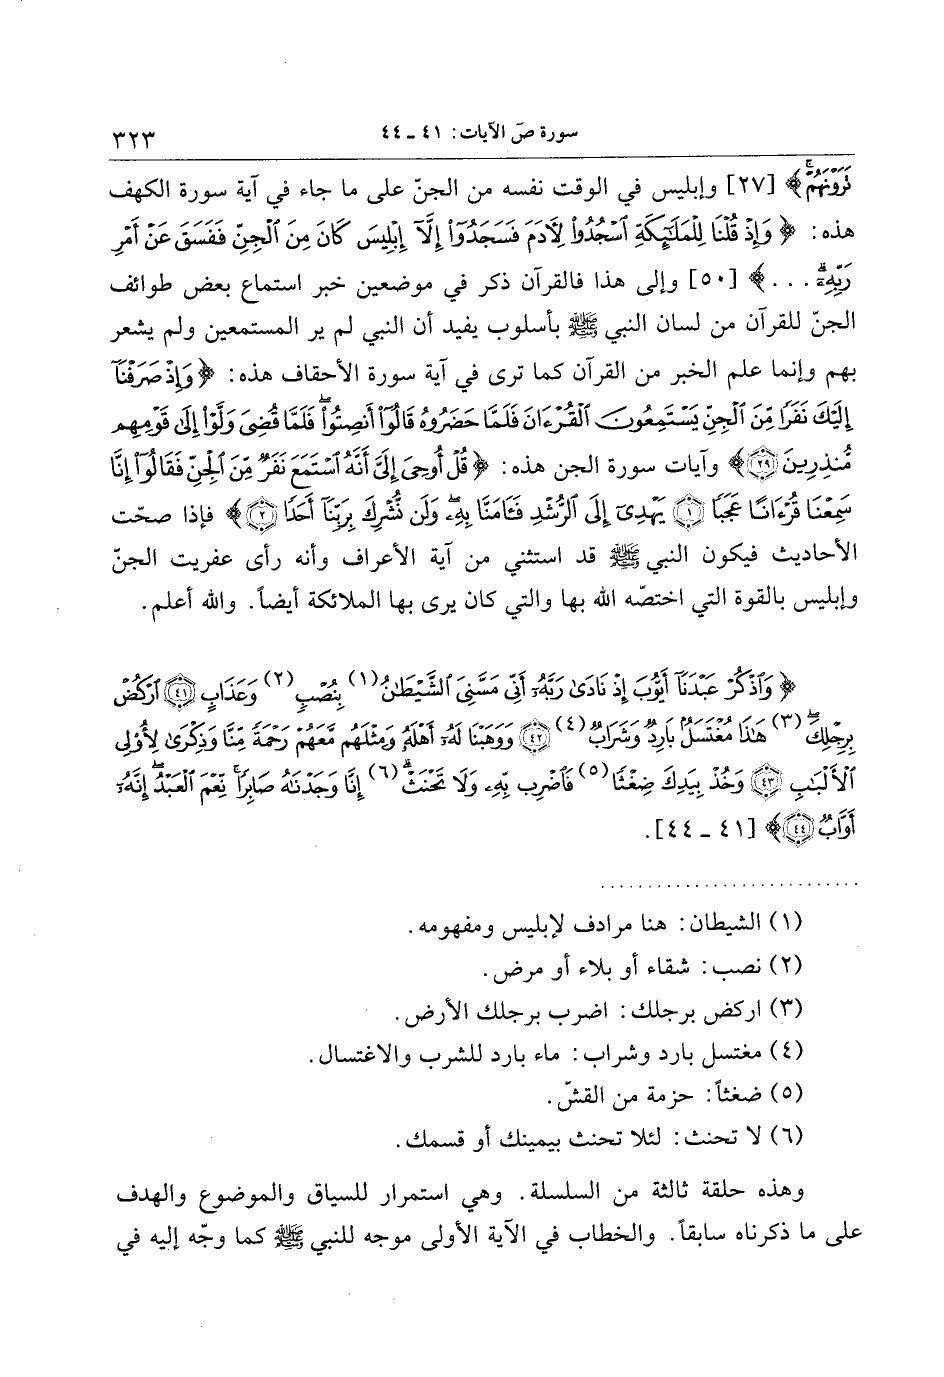 سورة صَ الآيات: ٤١ ـ ٤٤ ٣٢٣
نَرَوْنَهُمْ﴾ [٢٧] وإبليس في الوقت نفسه من الجنّ على ما جاء في آية سورة الكهف
هذه: ﴿وَإِذْ قُلْنَا لِلْمَلَٰٓئِكَةِ ٱسْجُدُوا۟ لِأَدَمَ فَسَجَدُوٓا۟ إِلَّآ إِبْلِيسَ كَانَ مِنَ ٱلْجِنِّ فَفَسَقَ عَنْ أَمْرِ
رَبِّهِۦٓ ...﴾ [٥٠] وإلى هذا فالقرآن ذكر في موضعين خبر استماع بعض طوائف
الجنّ للقرآن من لسان النبي ﷺ بأسلوب يفيد أن النبي لم ير المستمعين ولم يشعر
بهم وإنما علم الخبر من القرآن كما ترى في آية سورة الأحقاف هذه: ﴿وَإِذْ صَرَفْنَآ
إِلَيْكَ نَفَرًا مِّنَ ٱلْجِنِّ يَسْتَمِعُونَ ٱلْقُرْءَانَ فَلَمَّا حَضَرُوهُ قَالُوٓا۟ أَنصِتُوا۟ۖ فَلَمَّا قُضِىَ وَلَّوْا۟ إِلَىٰ قَوْمِهِم
مُّنذِرِينَ ﴿٢٩﴾﴾ وآيات سورة الجن هذه: ﴿قُلْ أُوحِىَ إِلَىَّ أَنَّهُ ٱسْتَمَعَ نَفَرٌ مِّنَ ٱلْجِنِّ فَقَالُوٓا۟ إِنَّا
سَمِعْنَا قُرْءَانًا عَجَبًا ﴿١﴾ يَهْدِىٓ إِلَى ٱلرُّشْدِ فَـَٔامَنَّا بِهِۦۖ وَلَن نُّشْرِكَ بِرَبِّنَآ أَحَدًا ﴿٢﴾﴾ فإذا صحّت
الأحاديث فيكون النبي ﷺ قد استثني من آية الأعراف وأنه رأى عفريت الجنّ
وإبليس بالقوة التي اختصّه الله بها والتي كان يرى بها الملائكة أيضاً. والله أعلم.
﴿وَٱذْكُرْ عَبْدَنَآ أَيُّوبَ إِذْ نَادَىٰ رَبَّهُۥٓ أَنِّى مَسَّنِىَ ٱلشَّيْطَٰنُ(١) بِنُصْبٍ(٢) وَعَذَابٍ ﴿٤١﴾ ٱرْكُضْ
بِرِجْلِكَۖ(٣) هَٰذَا مُغْتَسَلٌۢ بَارِدٌ وَشَرَابٌ(٤) ﴿٤٢﴾ وَوَهَبْنَا لَهُۥٓ أَهْلَهُۥ وَمِثْلَهُم مَّعَهُمْ رَحْمَةً مِّنَّا وَذِكْرَىٰ لِأُو۟لِى
ٱلْأَلْبَٰبِ ﴿٤٣﴾ وَخُذْ بِيَدِكَ ضِغْثًا(٥) فَٱضْرِب بِّهِۦ وَلَا تَحْنَثْۗ(٦) إِنَّا وَجَدْنَٰهُ صَابِرًاۚ نِّعْمَ ٱلْعَبْدُۖ إِنَّهُۥٓ
أَوَّابٌ ﴿٤٤﴾﴾ [٤١ ـ ٤٤].
(١) الشيطان: هنا مرادف لإبليس ومفهومه.
(٢) نصب: شقاء أو بلاء أو مرض.
(٣) اركض برجلك: اضرب برجلك الأرض.
(٤) مغتسل بارد وشراب: ماء بارد للشرب والاغتسال.
(٥) ضغثاً: حزمة من القشّ.
(٦) لا تحنث: لئلا تحنث بيمينك أو قسمك.
وهذه حلقة ثالثة من السلسلة. وهي استمرار للسياق والموضوع والهدف
على ما ذكرناه سابقاً. والخطاب في الآية الأولى موجه للنبي ﷺ كما وجّه إليه في